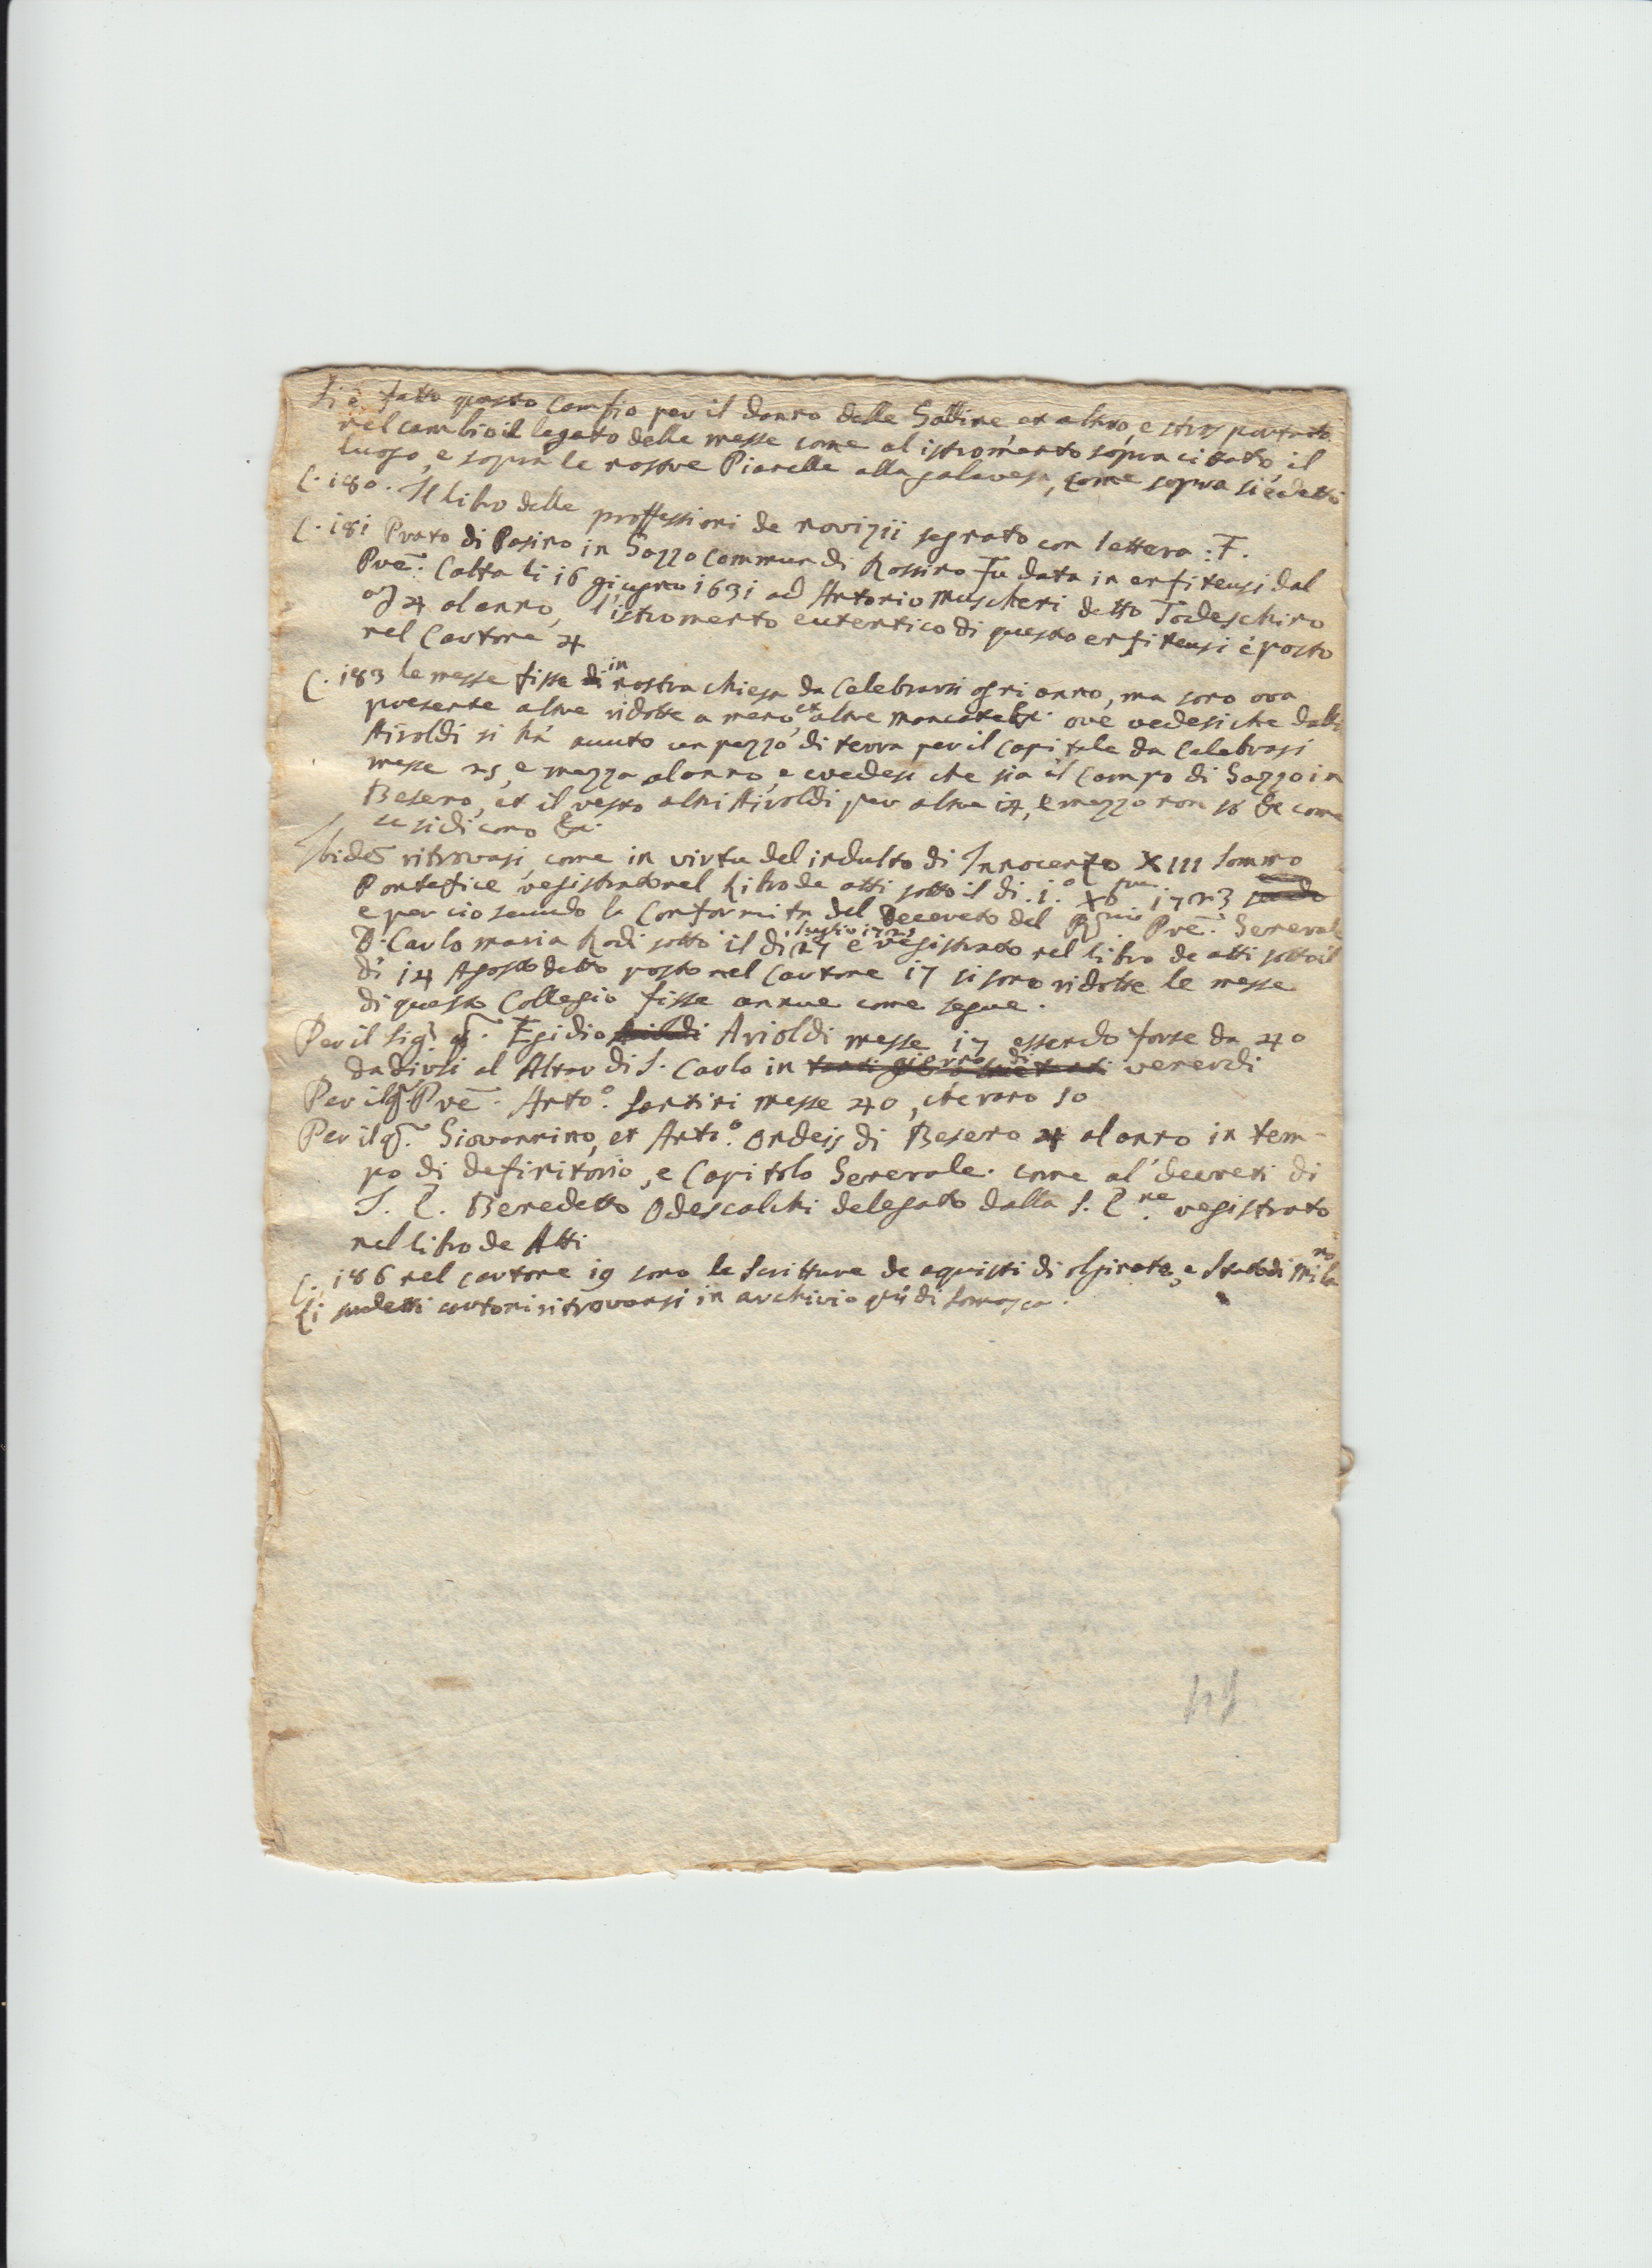 Si è fatto questo Cambio per il danno delle Galline et altro, e trasportato
nel cambio il legato delle messe come al istromento sopra citato, il
luogo, e sopra le nostre Pianelle alla galavesa, come sopra si è detto
C. 180. Il libro delle professioni de novizii segnato con lettera: F.
C. 181 Prato di Pasino in Gozzo Commun di Rossino Fu data in enfiteusi dal
Prē. Cotta li 16 giugno 1631 ad Antonio Muscheri detto Todeschino
a 4 al anno, l'istromento autentico di questa enfiteusi è posto
nel Cartone 4
C. 183 le messe fisse di in nostra chiesa da Celebrarsi ogni anno, ma sono ora
presente altre ridotte a meno, et altre mancate &c. ove vedesi che dalli
Airoldi si hà auuto un pezzo di terra per il Capitale da Celebrasi
messe 25, e mezza al anno, e credesi che sia il Campo di Gozzo in
Beseno, et il resto altri Airoldi per altre 14, e mezzo non so &c come
se si dicono &c.
Ibidē ritrovasi, come in virtu del indulto di Innocenzo XIII Sommo
Pontefice registrato nel Libro de atti sotto il di .1.º Xbre 1723
e per cio secundo la Conformita del Decereto del Rmo. Prē. Generale
D. Carlo maria Lodi sotto il di 27 luglio 1725 e registrato nel libro de atti sotto il
di 14 Agosto detto posto nel Cartone 17 si sono ridotte le messe
di questo Collegio fisse annue come segue.
Per il Sig. q. Egidio Airoldi Arioldi messe 17 essendo forse da 40
da dirsi al Altar di S. Carlo in giorno di venerdi
Per il q. Prē. Antº. Santini messe 40, che vano 10
Per il q. Giovannino, et Antº. Ondeis di Beseno 4 al anno in tem-
po di definitorio, e Capitolo Generale. come al' decreti di
S. E. Benedetto Odescalchi delegato dalla S. C.ne registrato
nel libro de Atti
C. 186 nel cartone 19 sono le Scritture de aquisti di olginate, e Stato di Milano
Li sudetti cartoni ritrovansi in archivio qui di Somasca.